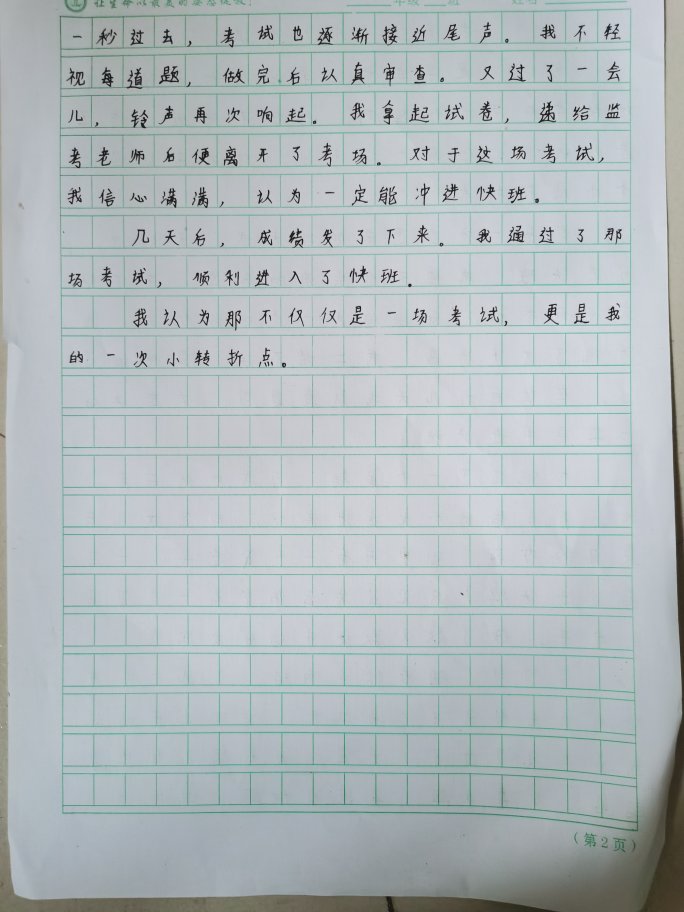 让生命以最美的姿态绽放！ 年级 班 姓名
一秒过去，考试也逐渐接近尾声。我不轻
视每道题，做完后认真审查。又过了一会
儿，铃声再次响起。我拿起试卷，递给监
考老师后便离开了考场。对于这场考试，
我信心满满，认为一定能冲进快班。
几天后，成绩发了下来。我通过了那
场考试，顺利进入了快班。
我认为那不仅仅是一场考试，更是我
的一次小转折点。
（第2页）